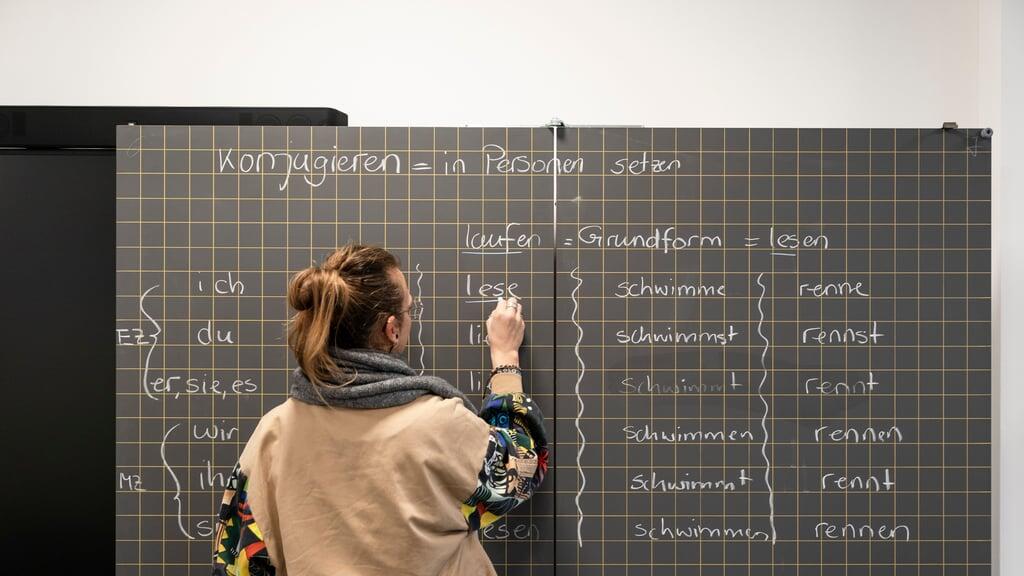 Konjugieren = in Personen setzen
laufen = Grundform = lesen
ich lese schwimme renne
EZ du schwimmst rennst
er, sie, es schwimmt rennt
wir schwimmen rennen
MZ schwimmt rennt
schwimmen rennen